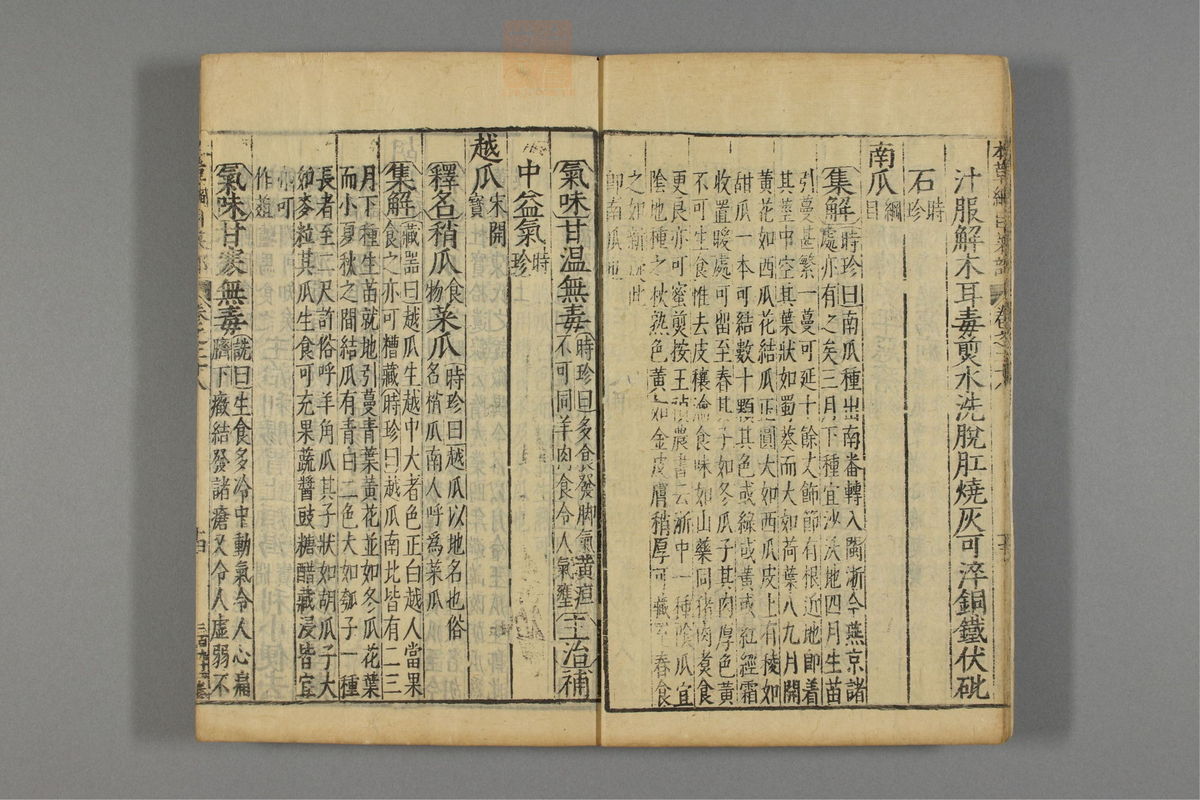 汁服解木耳毒煎水洗脫肛燒灰可淬銅鐵伏砒
石時珍
南瓜綱目
集解時珍曰南瓜種出南番轉入閩浙今燕京諸
處亦有之矣三月下種宜沙沃地四月生苗
引蔓甚繁一蔓可延十餘丈節節有根近地即着
其莖中空其葉狀如蜀葵而大如荷葉八九月開
黃花如西瓜花結瓜正圓大如西瓜皮上有稜如
甜瓜一本可結數十顆其色或綠或黃或紅經霜
收置暖處可留至春其子如冬瓜子其肉厚色黃
不可生食惟去皮穰瀹食味如山藥同猪肉煑食
更良亦可蜜煎按王禎農書云浙中一種陰瓜宜
陰地種之秋熟色黃如金皮膚稍厚可藏至春食
之如新此
即南瓜
氣味甘温無毒時珍曰多食發脚氣黃疸
不可同羊肉食令人氣壅主治補
中益氣時珍
越瓜宋開寶
釋名稍瓜食物菜瓜時珍曰越瓜以地名也俗
名梢瓜南人呼為菜瓜
集解藏器曰越瓜生越中大者色正白越人當果
食之亦可糟藏時珍曰越瓜南北皆有二三
月下種生苗就地引蔓青葉黃花並如冬瓜花葉
而小夏秋之間結瓜有青白二色大如瓠子一種
長者至二尺許俗呼羊角瓜其子狀如胡瓜子大
如麥粒其瓜生食可充果蔬醬豉糖醋藏浸皆宜
亦可
作葅
氣味甘寒無毒詵曰生食多冷中動氣令人心痛
臍下癥結發諸瘡又令人虛弱不